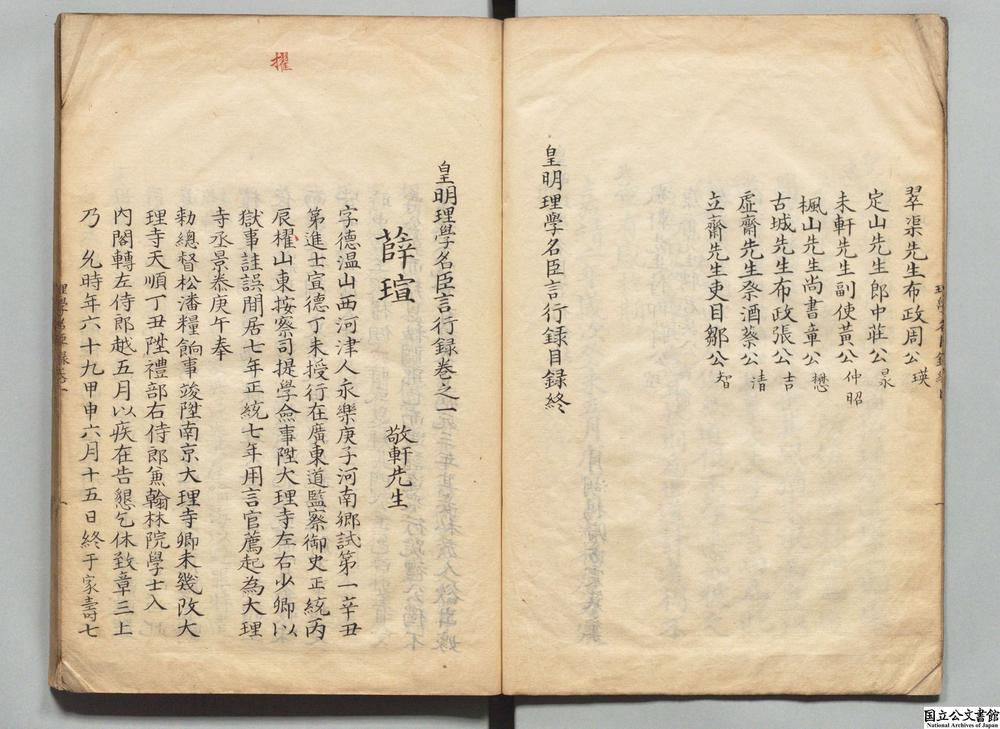 翠渠先生布政周公瑛
定山先生郎中莊公㫤
未軒先生副使黃公仲昭
楓山先生尚書章公懋
古城先生布政張公吉
虛齋先生祭酒蔡公清
立齋先生吏目鄒公智
皇明理學名臣言行錄目録終
擢
皇明理學名臣言行錄卷之一
薛瑄 敬軒先生
字德温山西河津人永樂庚子河南鄉試第一辛丑
第進士宣德丁未授行在廣東道監察御史正統丙
辰櫂山東按察司提學僉事陞大理寺左右少卿以
獄事詿誤閒居七年正統七年用言官薦起為大理
寺丞景泰庚午奉
勅總督松潘糧餉事竣陞南京大理寺卿未幾改大
理寺天順丁丑陞禮部右侍郎兼翰林院學士入
內閣轉左侍郎越五月以疾在告懇乞休致章三上
乃 允時年六十九甲申六月十五日終于家壽七
国立公文書館
National Archives of Japan